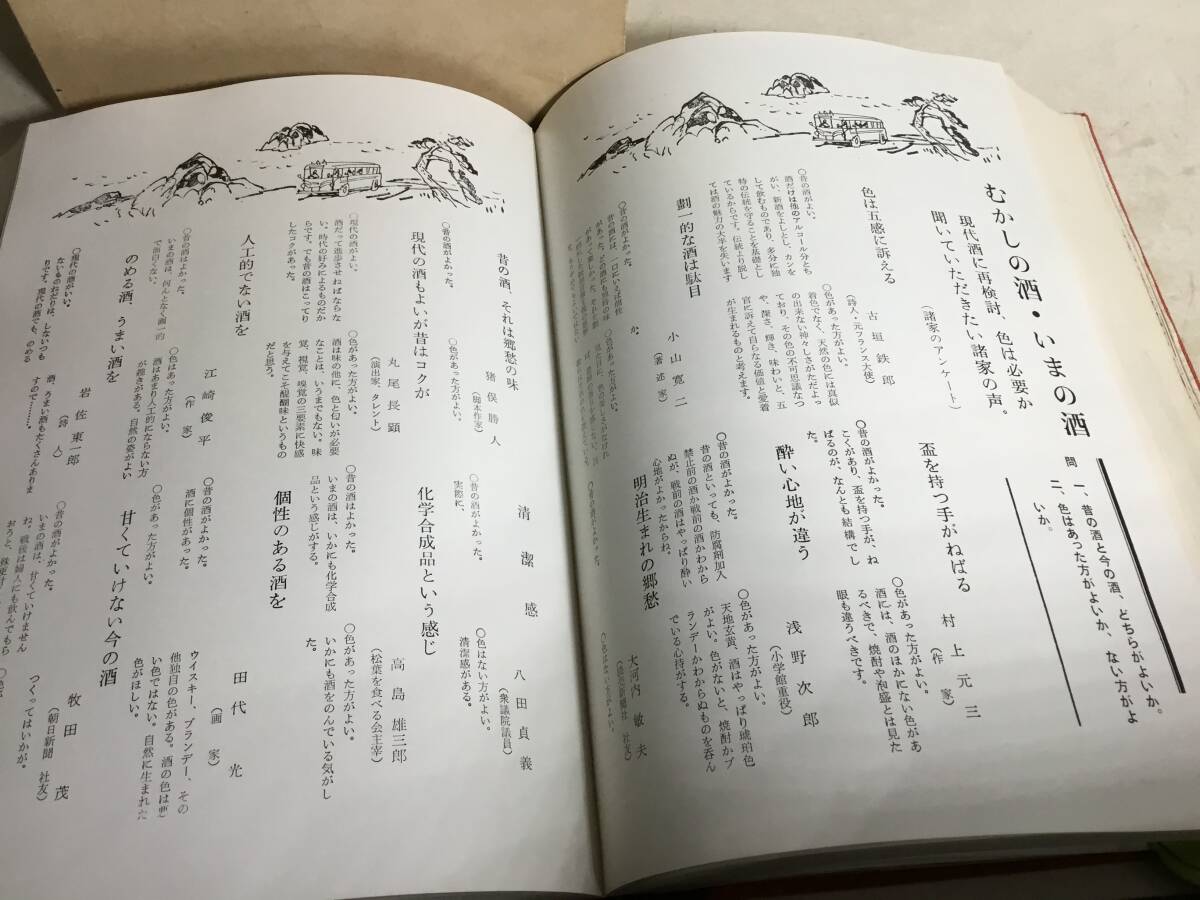 むかしの酒・いまの酒
現代酒に再検討、色は必要か
聞いていただきたい諸家の声。
(諸家のアンケート)
問 一、昔の酒と今の酒、どちらがよいか。
二、色はあった方がよいか、ない方がよ
いか。
色は五感に訴える
古垣鉄郎
(詩人・元フランス大使)
○昔の酒がよい。
酒だけは他のアルコール分とち
がい、新酒をよしとし、カンを
して飲むものであり、多分に独
特の伝統を守ることを基礎とし
ているからです。伝統より脱し
ては酒の魅力の大半を失います
○色があった方がよい。
着色でなく、天然の色には真似
の出来ない神々しさがただよっ
ており、その色の不可思議なつ
や、深さ、輝き、味わいと、五
官に訴えて自らなる価値と愛着
が生まれるものと考えます。
劃一的な酒は駄目
小山寛二
(著述家)
盃を持つ手がねばる
村上元三
(作家)
○昔の酒がよかった。
こくがあり、盃を持つ手が、ね
ばるのが、なんとも結構でし
た。
○色があった方がよい。
酒には、酒のほかにない色があ
るべきで、焼酎や泡盛とは見た
眼も違うべきです。
酔い心地が違う
浅野次郎
(小学館重役)
○昔の酒がよかった。
昔の酒といっても、防腐剤加入
禁止前の酒か戦前の酒かわから
ぬが、戦前の酒はやっぱり酔い
心地がよかったからね。
○色があった方がよい。
天地玄黄、酒はやっぱり琥珀色
がよい。色がないと、焼酎かブ
ランデーかわからぬものを呑ん
でいる心持がする。
明治生まれの郷愁
大河内敏夫
昔の酒、それは郷愁の味
猪俣勝人
(脚本作家)
○昔の酒がよかった。
○色があった方がよい。
現代の酒もよいが昔はコクが
丸尾長顕
(演出家、タレント)
○現代の酒がよい。
酒だって進歩させねばならな
い。時代の好みによるものだか
らです。でも昔の酒はこってり
したコクがあった。
○色があった方がよい。
酒は味の他に、色と匂いが必要
なことは、いうまでもない。味
覚、視覚、嗅覚の三要素に快感
を与えてこそ醍醐味というもの
だと思う。
人工的でない酒を
江崎俊平
(作家)
○昔の酒はよかった。
いまの酒は、何んとなく画一的
で面白くない。
○色はあった方がよい。
酒はあまり人工的にならない方
が趣きがある。自然の姿がよい
のめる酒、うまい酒を
岩佐東一郎
(詩人)
○現代の酒がいい。
ないものねだりは、しないつも
りです。現代の酒でも、のめる
酒、うまい酒もたくさんありま
すので………。
清潔感
八田貞義
(衆議院議員)
○昔の酒がよかった。
実際に、
○色はない方がよい。
清潔感がある。
化学合成品という感じ
高島雄三郎
(松葉を食べる会主宰)
○昔の酒はよかった。
いまの酒は、いかにも化学合成
品という感じがする。
○色があった方がよい。
いかにも酒をのんでいる気がし
た。
個性のある酒を
田代光
(画家)
○昔の酒がよかった。
酒に個性があった。
○色があった方がよい。
ウイスキー、ブランデー、その
他独目の色がある。酒の色は悪
い色ではない。自然に生まれた
色がほしい。
甘くていけない今の酒
牧田茂
(朝日新聞 社友)
○昔の酒がよかった。
いまの酒は、甘くていけません
ね。戦後は婦人にも飲んでもら
つくってはいかが。